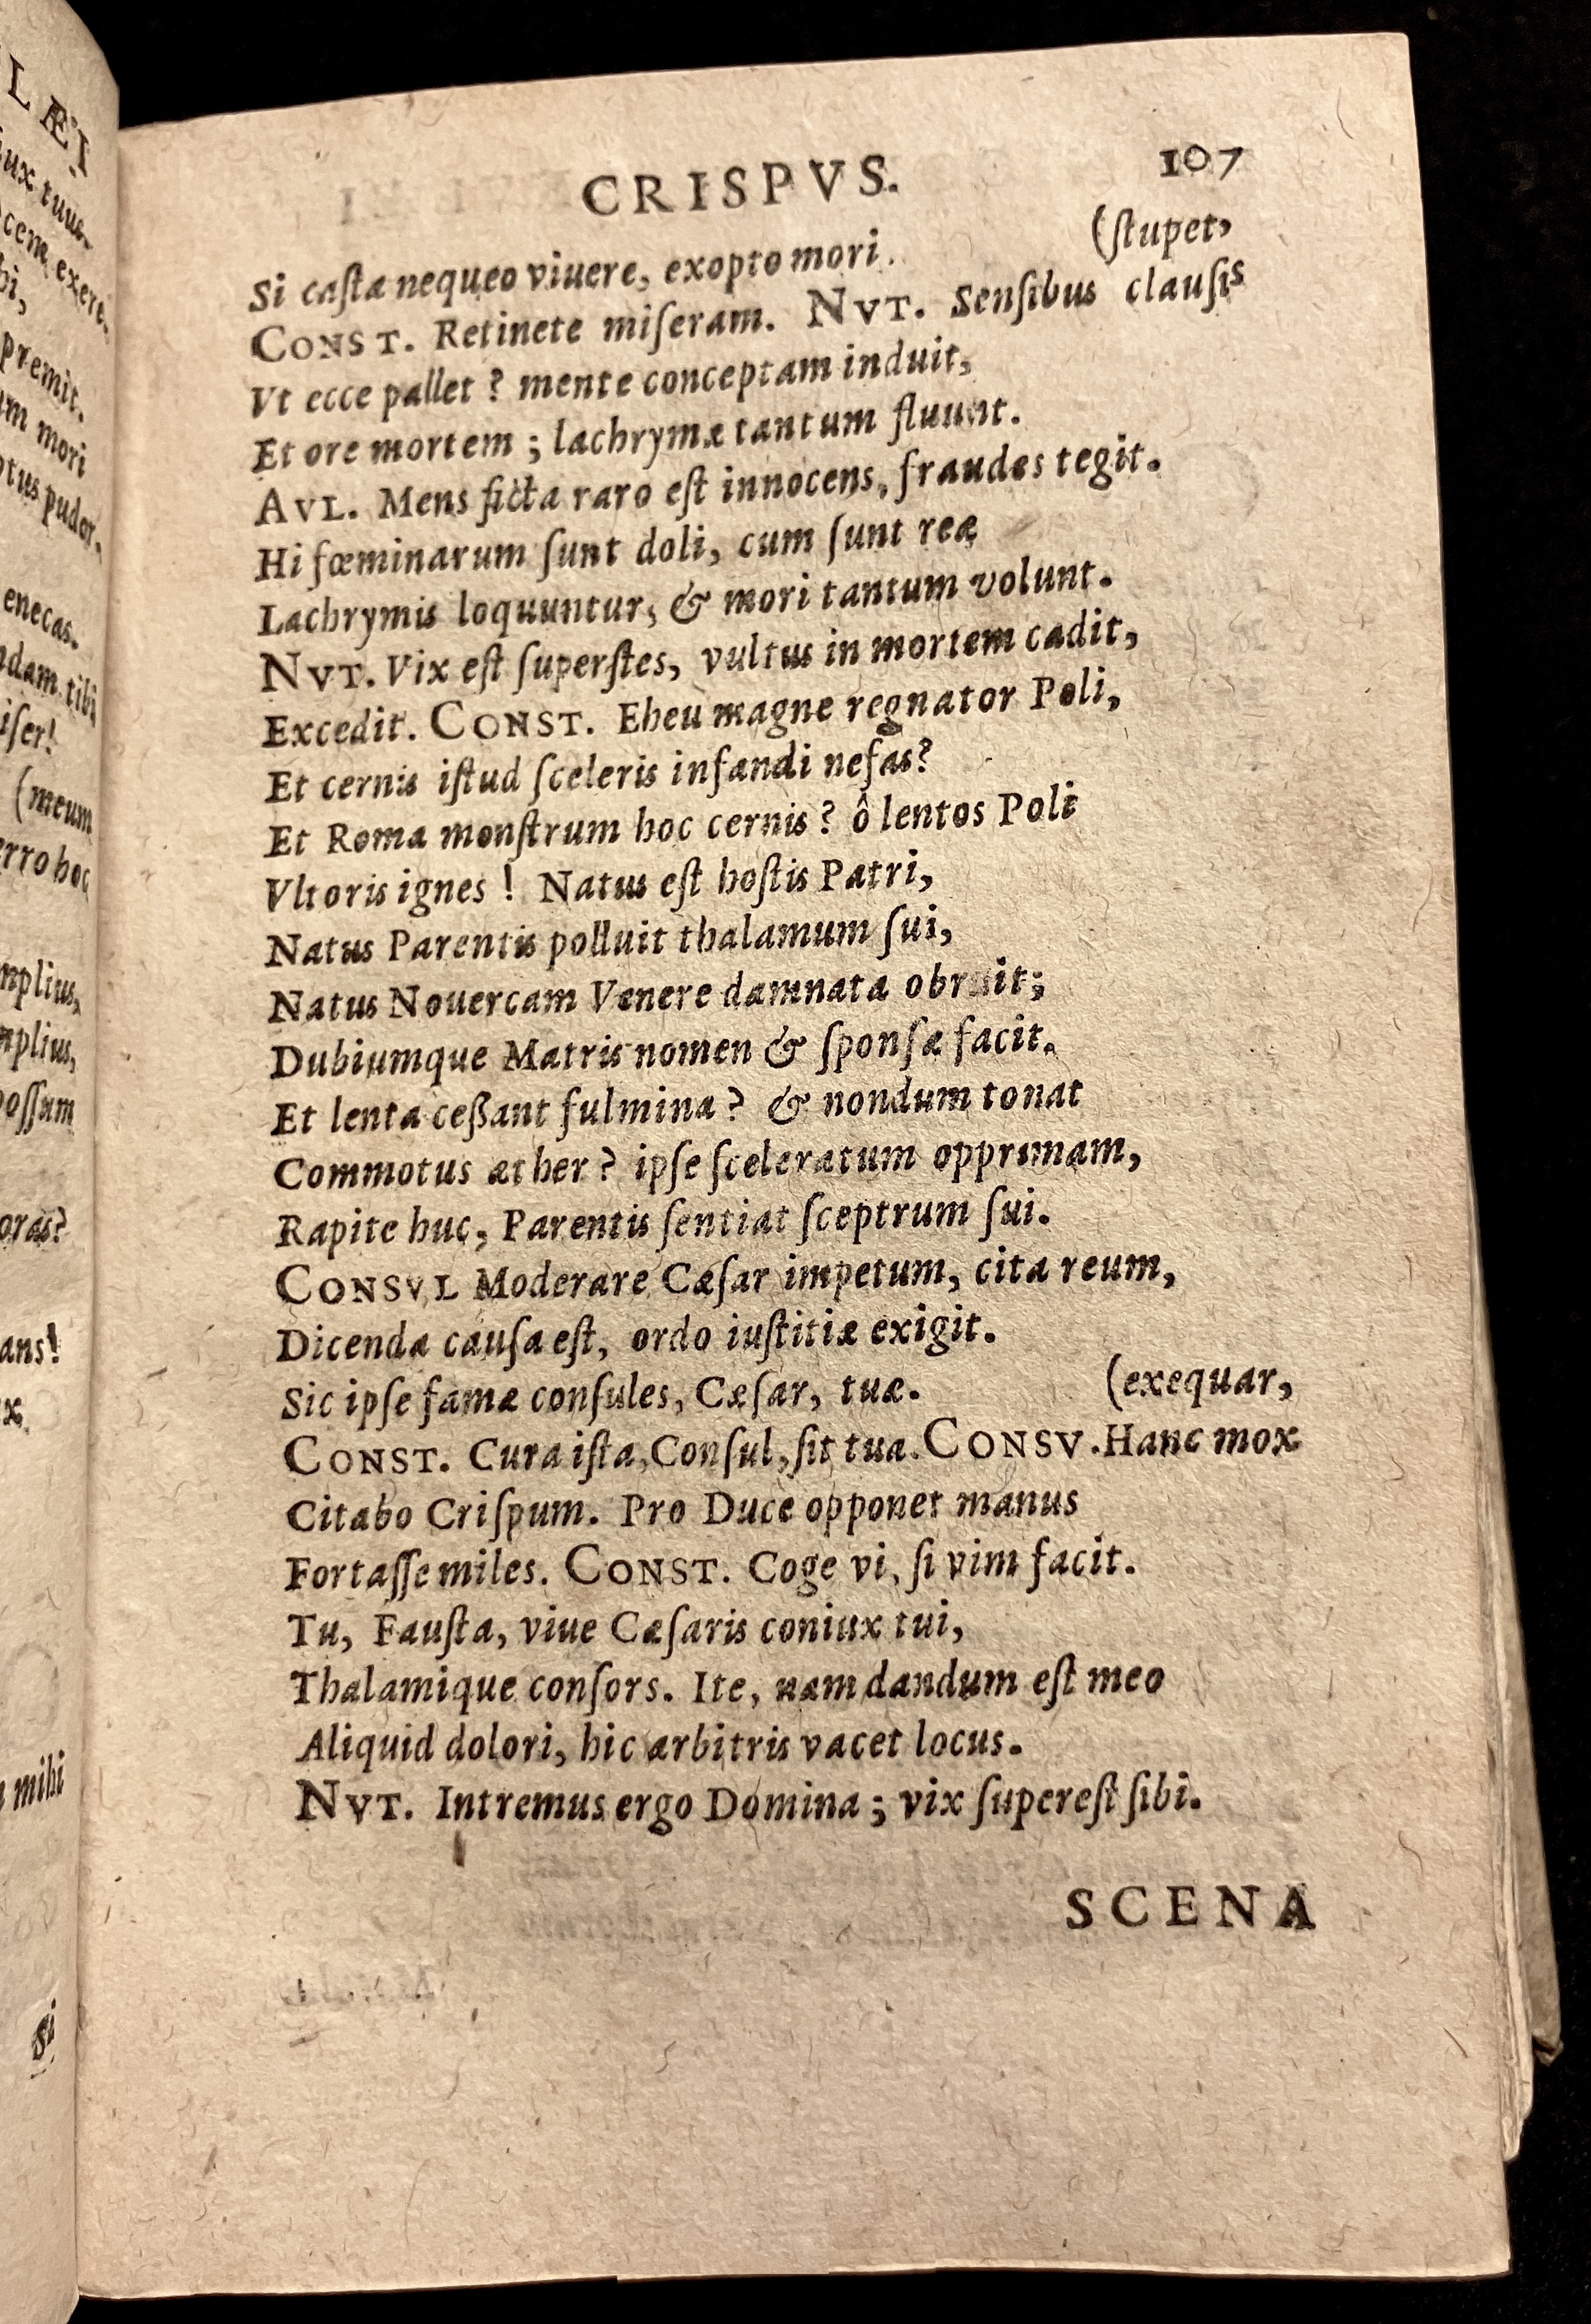 LÆI
iux tuus.
ocem exere.
bi,
premit.
um mori
ptus pudor.
enecas.
ndam tibi
iser!
(meum
erro hoc
mplius,
mplius,
possum
oras?
ans!
x.
mihi
Si
CRISPVS. 107
(ſtupet,
Si caſta nequeo viuere, exopto mori.
CONST. Retinete miſeram. NVT. Senſibus clauſis
Vt ecce pallet? mente conceptam induit,
Et ore mortem; lachrymæ tantum fluunt.
AVL. Mens ficta raro eſt innocens, fraudes tegit.
Hi fœminarum ſunt doli, cum ſunt reæ
Lachrymis loquuntur, & mori tantum volunt.
NVT. Vix eſt ſuperſtes, vultus in mortem cadit,
Excedit. CONST. Eheu magne regnator Poli,
Et cernis iſtud ſceleris infandi nefas?
Et Roma monſtrum hoc cernis? ô lentos Poli
Vltoris ignes! Natus eſt hoſtis Patri,
Natus Parentis polluit thalamum ſui,
Natus Nouercam Venere damnata obruit;
Dubiumque Matris nomen & ſponſæ facit.
Et lenta ceßant fulmina? & nondum tonat
Commotus æther? ipſe ſceleratum opprimam,
Rapite huc, Parentis ſentiat ſceptrum ſui.
CONSVL Moderare Cæſar impetum, cita reum,
Dicenda cauſa eſt, ordo iuſtitiæ exigit.
Sic ipſe famæ conſules, Cæſar, tuæ. (exequar,
CONST. Cura iſta, Conſul, ſit tua. CONSV. Hanc mox
Citabo Criſpum. Pro Duce opponet manus
Fortaſſe miles. CONST. Coge vi, ſi vim facit.
Tu, Fauſta, viue Cæſaris coniux tui,
Thalamique conſors. Ite, nam dandum eſt meo
Aliquid dolori, hic arbitris vacet locus.
NVT. Intremus ergo Domina; vix ſupereſt ſibi.
SCENA